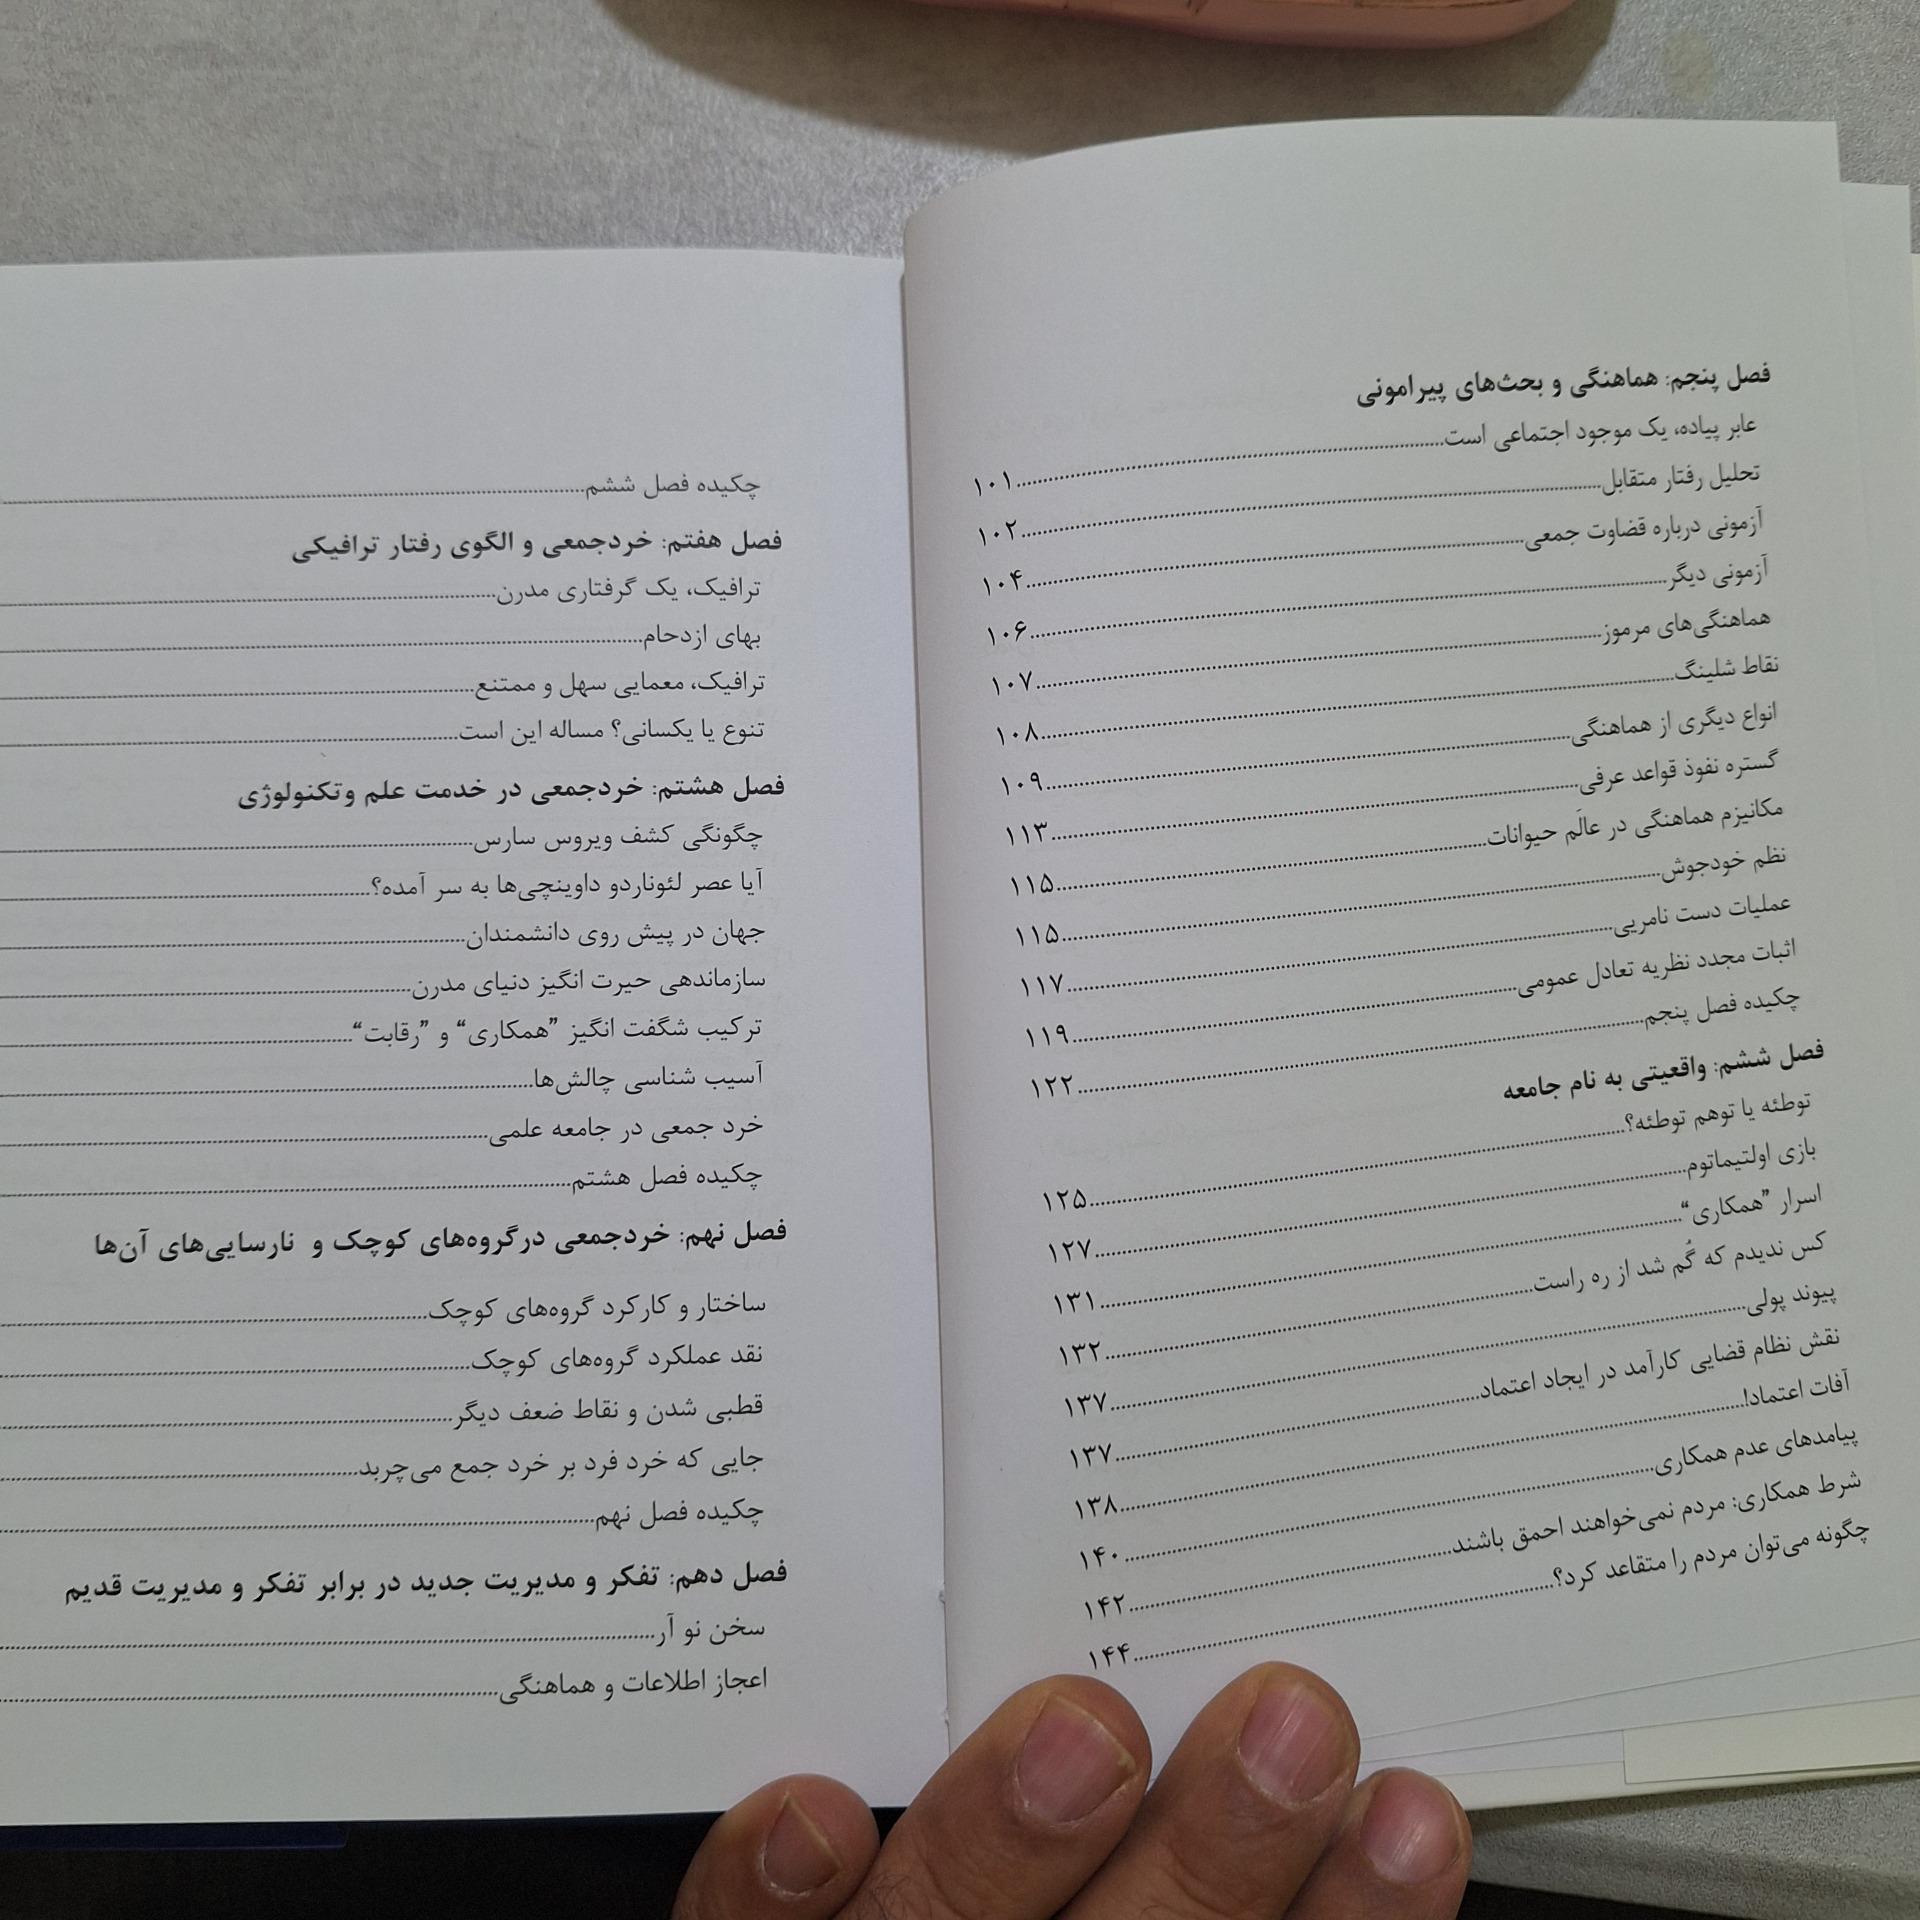 فصل پنجم: هماهنگی و بحث‌های پیرامونی
عابر پیاده، یک موجود اجتماعی است..........۱۰۱
تحلیل رفتار متقابل..........۱۰۲
آزمونی درباره قضاوت جمعی..........۱۰۴
آزمونی دیگر..........۱۰۶
هماهنگی‌های مرموز..........۱۰۷
نقاط شلینگ..........۱۰۸
انواع دیگری از هماهنگی..........۱۰۹
گستره نفوذ قواعد عرفی..........۱۱۳
مکانیزم هماهنگی در عالَم حیوانات..........۱۱۵
نظم خودجوش..........۱۱۵
عملیات دست نامریی..........۱۱۷
اثبات مجدد نظریه تعادل عمومی..........۱۱۹
چکیده فصل پنجم..........۱۲۲
فصل ششم: واقعیتی به نام جامعه
توطئه یا توهم توطئه؟..........۱۲۵
بازی اولتیماتوم..........۱۲۷
اسرار ”همکاری“..........۱۳۱
کس ندیدم که گُم شد از ره راست..........۱۳۲
پیوند پولی..........۱۳۷
نقش نظام قضایی کارآمد در ایجاد اعتماد..........۱۳۷
آفات اعتماد!..........۱۳۸
پیامدهای عدم همکاری..........۱۴۰
شرط همکاری: مردم نمی‌خواهند احمق باشند..........۱۴۲
چگونه می‌توان مردم را متقاعد کرد؟..........۱۴۴
چکیده فصل ششم..........
فصل هفتم: خردجمعی و الگوی رفتار ترافیکی
ترافیک، یک گرفتاری مدرن..........
بهای ازدحام..........
ترافیک، معمایی سهل و ممتنع..........
تنوع یا یکسانی؟ مساله این است..........
فصل هشتم: خردجمعی در خدمت علم وتکنولوژی
چگونگی کشف ویروس سارس..........
آیا عصر لئوناردو داوینچی‌ها به سر آمده؟..........
جهان در پیش روی دانشمندان..........
سازماندهی حیرت انگیز دنیای مدرن..........
ترکیب شگفت انگیز ”همکاری“ و ”رقابت“..........
آسیب شناسی چالش‌ها..........
خرد جمعی در جامعه علمی..........
چکیده فصل هشتم..........
فصل نهم: خردجمعی درگروه‌های کوچک و نارسایی‌های آن‌ها
ساختار و کارکرد گروه‌های کوچک..........
نقد عملکرد گروه‌های کوچک..........
قطبی شدن و نقاط ضعف دیگر..........
جایی که خرد فرد بر خرد جمع می‌چربد..........
چکیده فصل نهم..........
فصل دهم: تفکر و مدیریت جدید در برابر تفکر و مدیریت قدیم
سخن نو آر..........
اعجاز اطلاعات و هماهنگی..........